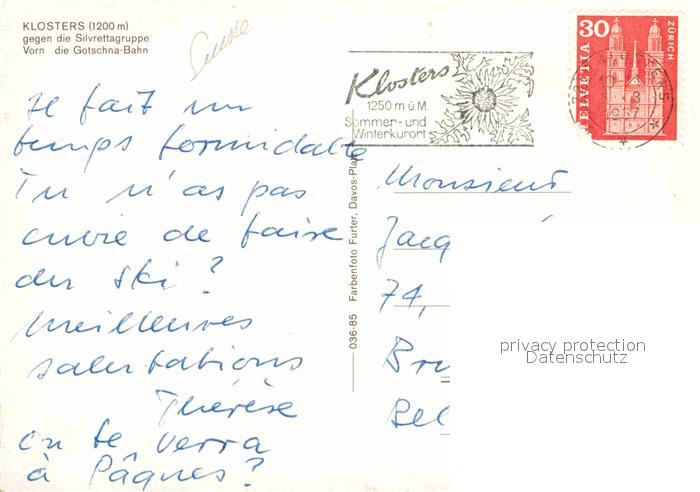 KLOSTERS (1200 m)
gegen die Silvrettagruppe
Vorn die Gotschna-Bahn
Suisse
Klosters
1250 m ü M.
Sommer- und
Winterkurort
30
HELVETIA
ZÜRICH
il fait un
temps formidable
Tu n'as pas
envie de faire
du ski?
Meilleures
salutations
Thérèse
on te verra
à Pâques?
036-85 Farbenfoto Furter, Davos-Platz
Monsieur
Jacq
74,
Bru
Bel
privacy protection
Datenschutz